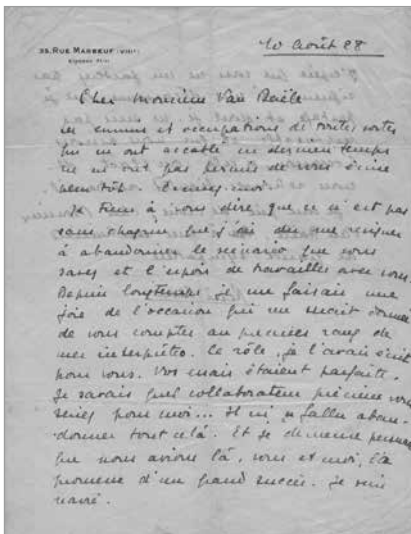 35, RUE MARBEUF (VIIIe)
10 Août 28
Cher Monsieur Van Daële
les ennuis et occupations de toutes sortes
qui m'ont accablé ces derniers temps
ne m'ont pas permis de vous écrire
plus tôt. Excusez-moi.
Je tiens à vous dire que ce n'est pas
sans chagrin que j'ai dû me résigner
à abandonner le scénario que vous
savez et l'espoir de travailler avec vous.
Depuis longtemps je me faisais une
joie de l'occasion qui me serait donnée
de vous compter au premier rang de
mes interprètes. Ce rôle, je l'avais écrit
pour vous. Vos essais étaient parfaits.
Je savais quel collaborateur précieux vous
seriez pour moi... Il m'a fallu aban-
donner tout cela. Et je demeure persuadé
que nous avions là, vous et moi, la
promesse d'un grand succès. Je suis
navré.